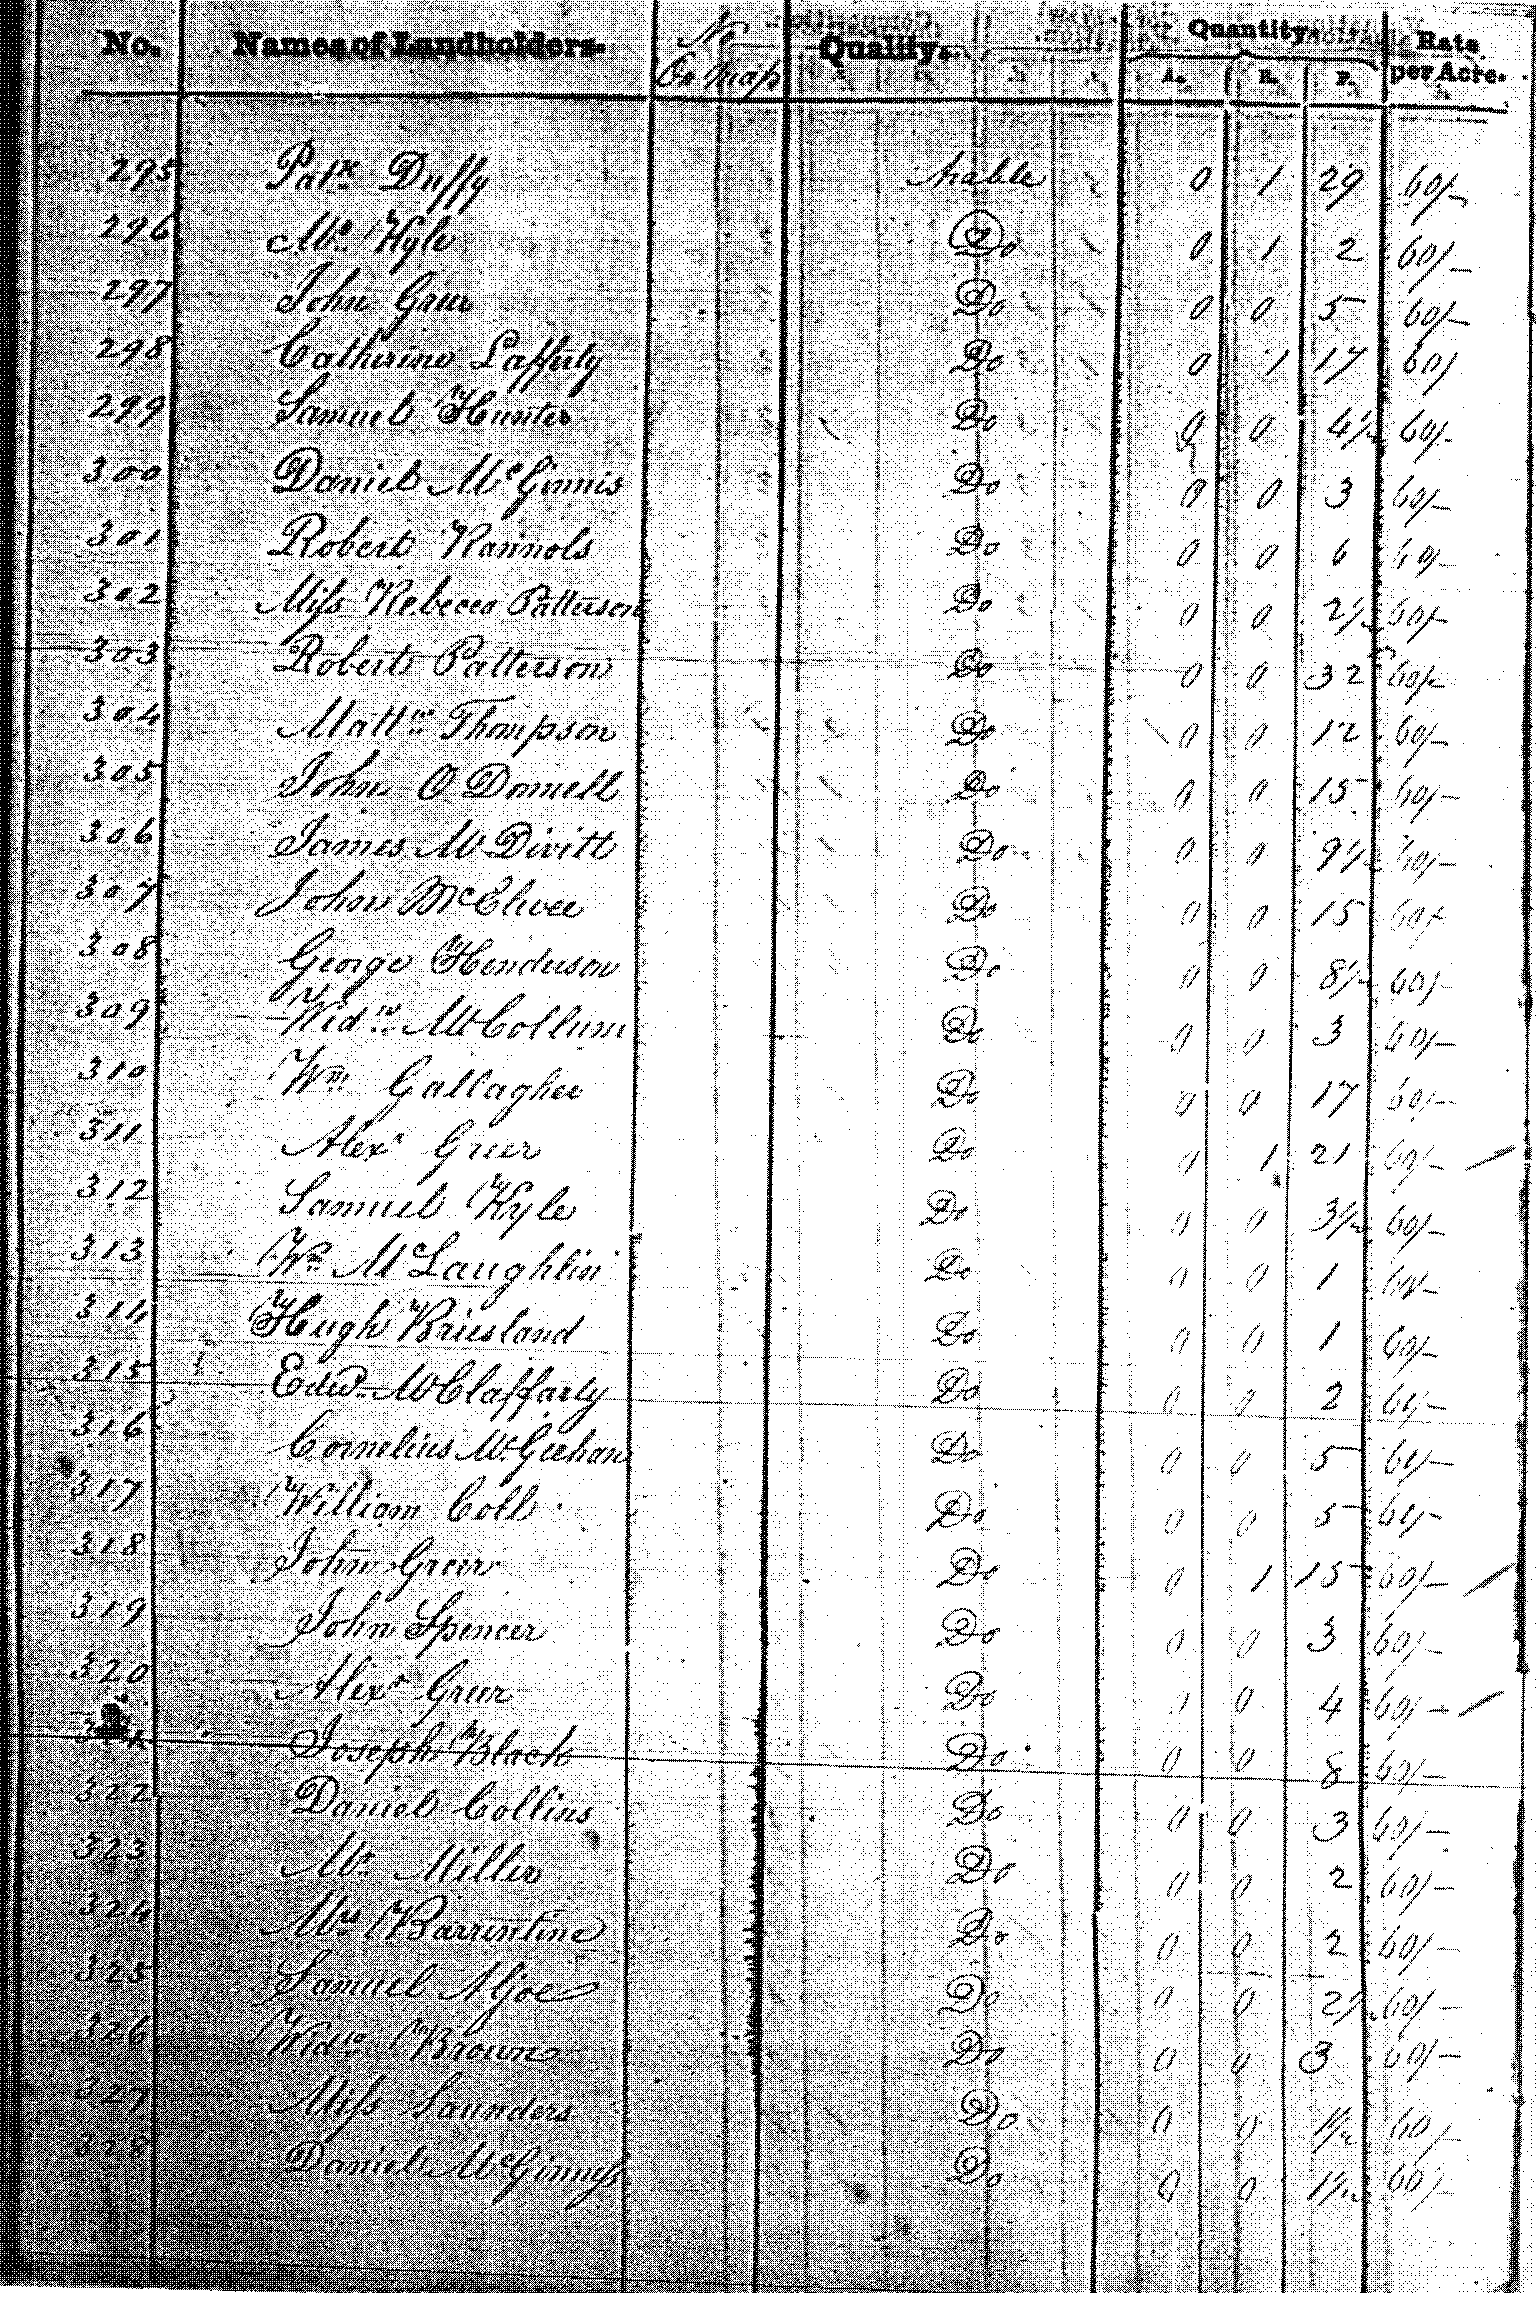 No. Names of Landholders. No On Map Quality. Quantity. Rate per Acre.
A. R. P.
295 Patk. Duffy Arable 0 1 29 60/-
296 Mr. Kyle Do 0 1 2 60/-
297 John Greer Do 0 0 5 60/-
298 Catherine Lafferty Do 0 1 17 60/
299 Samuel Hunter Do 0 0 4½ 60/-
300 Daniel McGinnis Do 0 0 3 60/-
301 Robert Rannols Do 0 0 6 60/-
302 Miss Rebecca Patterson Do 0 0 2½ 60/-
303 Robert Patterson Do 0 0 32 60/-
304 Mattw. Thompson Do 0 0 12 60/-
305 John O Donnell Do 0 0 15 60/-
306 James McDivitt Do 0 0 9½ 60/-
307 John McElwee Do 0 0 15 60/-
308 George Henderson Do 0 0 8½ 60/-
309 Widw. McCollum Do 0 0 3 60/-
310 Wm. Gallagher Do 0 0 17 60/-
311 Alexr Greer Do 0 1 21 60/-
312 Samuel Kyle Do 0 0 3½ 60/-
313 Wm. McLaughlin Do 0 0 1 60/-
314 Hugh Briesland Do 0 0 1 60/-
315 Edwd. McClafferty Do 0 0 2 60/-
316 Cornelius McGeehan Do 0 0 5 60/-
317 William Coll Do 0 0 5 60/-
318 John Greer Do 0 1 15 60/-
319 John Spencer Do 0 0 3 60/-
320 Alexr Greer Do 0 0 4 60/-
Joseph Black Do 0 0 8 60/-
322 Daniel Collins Do 0 0 3 60/-
323 Mr. Miller Do 0 0 2 60/-
324 Mrs Barrentine Do 0 0 2 60/-
325 Samuel Aljoe Do 0 0 2½ 60/-
326 Widw. Brown Do 0 0 3 60/-
327 Miss Saunders Do 0 0 1½ 60/
328 Daniel McGinness Do 0 0 1½ 60/